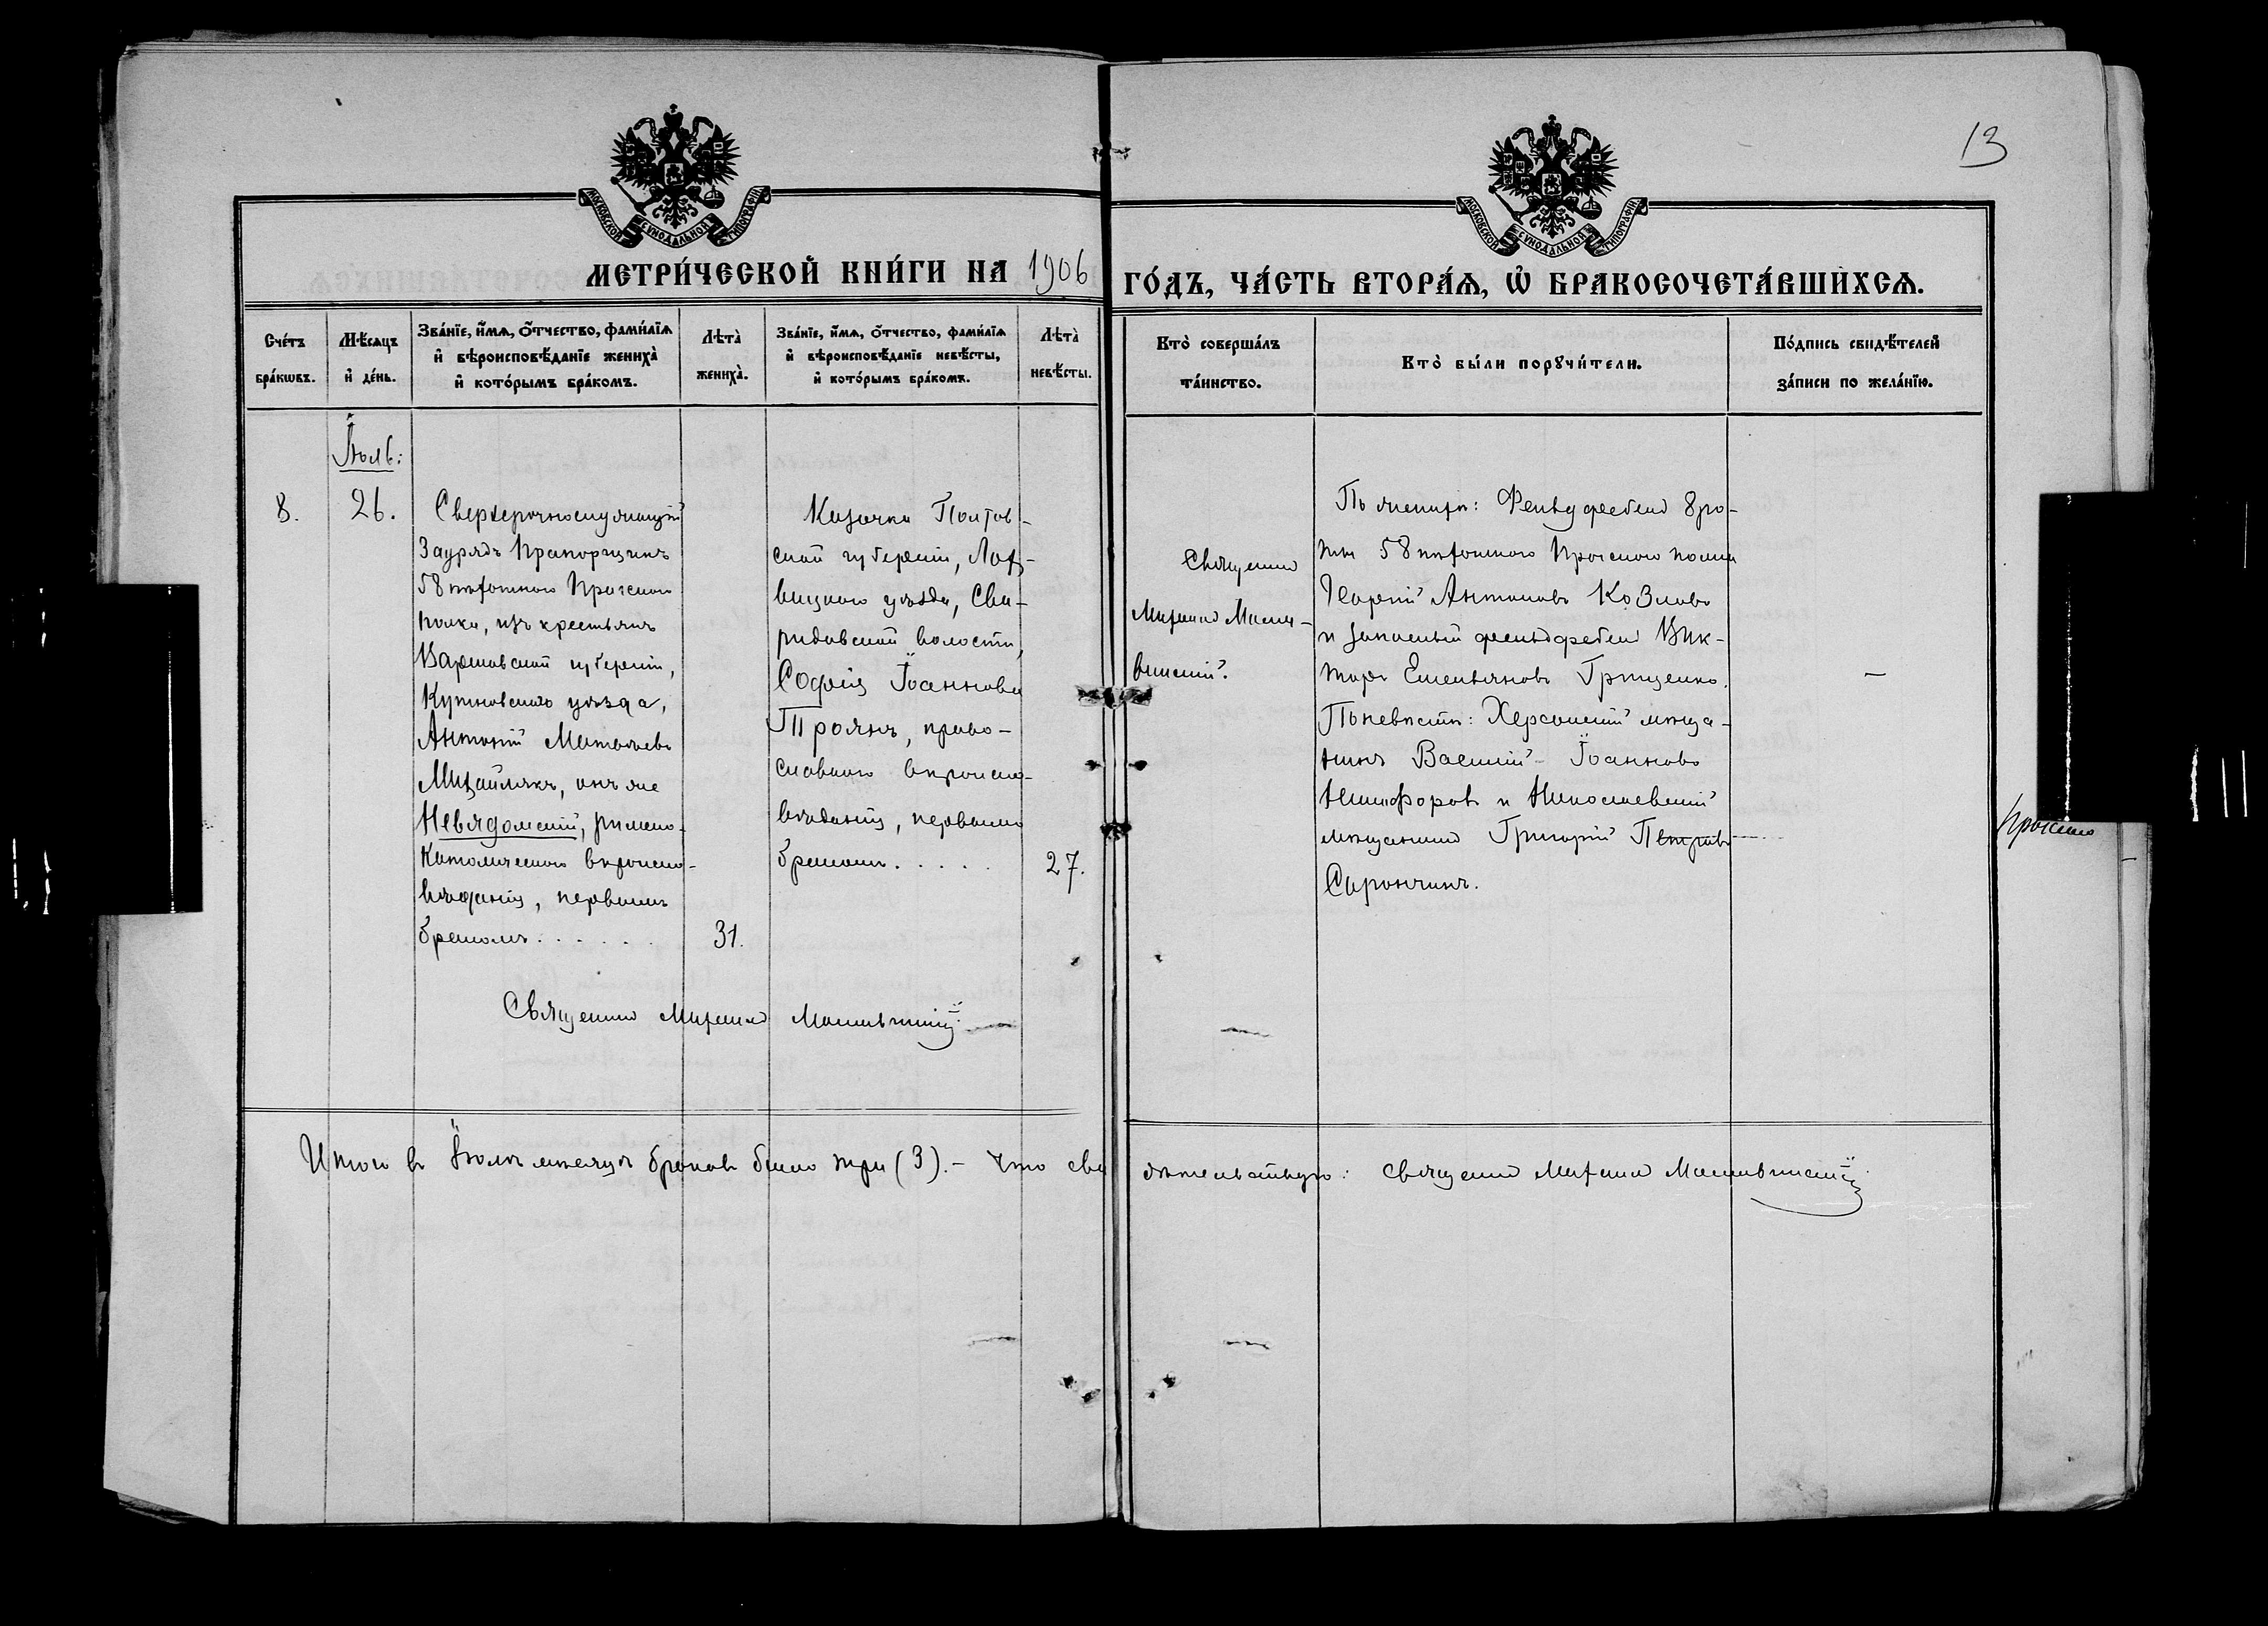 13
МОСКОВСКОЙ СѴНОДАЛЬНОЙ ТИПОГРАФІИ
МОСКОВСКОЙ СѴНОДАЛЬНОЙ ТИПОГРАФІИ
МЕТРИ́ЧЕСКОЙ КНИ́ГИ НА 1906 ГО́ДЪ, ЧА́СТЬ ВТОРА́Ѧ, Ѡ҆ БРАКОСОЧЕТА́ВШИХСѦ.
Сче́тъ
бра́кѡвъ.
Мѣ́сѧцъ
и҆ де́нь.
Зва́нїе, и҆́мѧ, ѻ҆́тчество, фами́лїѧ
и҆ вѣроисповѣ́данїе жениха̀
и҆ кото́рымъ бра́комъ.
Лѣта̀
жениха̀.
Зва́нїе, и҆́мѧ, ѻ҆́тчество, фами́лїѧ
и҆ вѣроисповѣ́данїе невѣ́сты,
и҆ кото́рымъ бра́комъ.
Лѣта̀
невѣ́сты.
Кто̀ соверша́лъ
та́инство.
Кто̀ бы́ли порꙋчи́тели.
По́дпись свидѣ́телей
за́писи по жела́нїю.
Іюль:
8.
26.
Сверхсрочнослужащій
Заурядъ Прапорщикъ
58 пѣхотнаго Прагскаго
полка, изъ крестьянъ
Варшавской губерніи,
Кутновскаго уѣзда,
Антоній Матвѣевъ
Михайлякъ, онъ же
Невядомскій, римско-
католическаго вѣроиспо-
вѣданія, первымъ
бракомъ . . . . . .
31.
Казачка Полтав-
ской губерніи, Лох-
вицкаго уѣзда, Сви-
ридовской волости,
Софія Іоаннова
Троянъ, право-
славнаго вѣроиспо-
вѣданія, первымъ
бракомъ . . . . .
27.
Священникъ
Михаилъ
По женихѣ: Фельдфебель 8 ро-
ты 58 пѣхотнаго Прагскаго полка
Георгій Антоновъ Козловъ
и запасный фельдфебель Вик-
торъ Емельяновъ Гриценко.
По невѣстѣ: Херсонскій мѣща-
нинъ Василій Іоанновъ
Никифоровъ и Николаевскій
мѣщанинъ Григорій Петровъ
Сарончикъ.
—
Священникъ Михаилъ
Итого въ Іюлѣ мѣсяцѣ браковъ было три (3). — Что сви дѣтельствую: священникъ Михаилъ